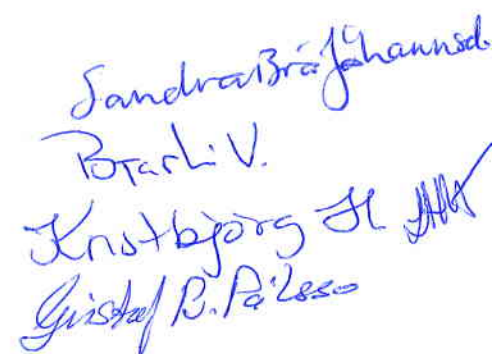 Sandra Brá Jóhannsd.
V.
Kristbjörg H
Gústaf B. Pálsso